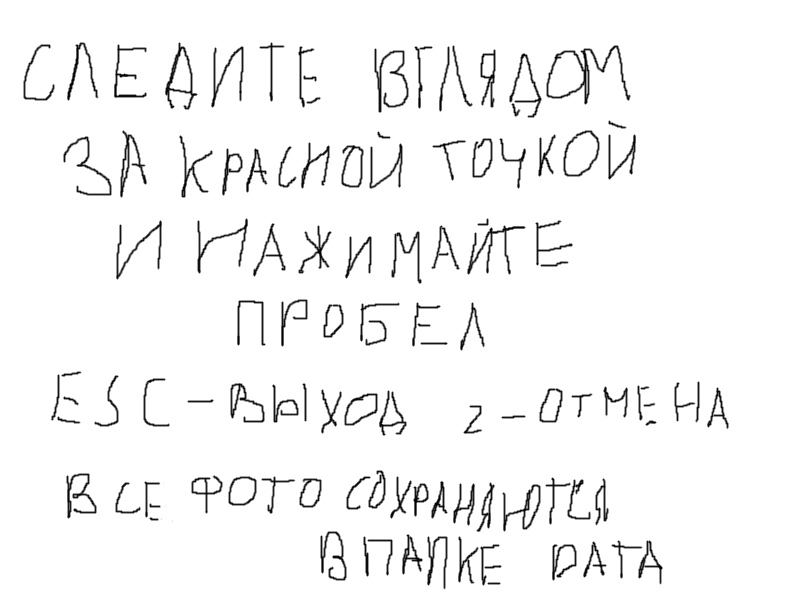 СЛЕДИТЕ ВГЛЯДОМ
ЗА КРАСНОЙ ТОЧКОЙ
И НАЖИМАЙТЕ
ПРОБЕЛ
ESC – ВЫХОД z – ОТМЕНА
ВСЕ ФОТО СОХРАНЯЮТСЯ
В ПАПКЕ DATA